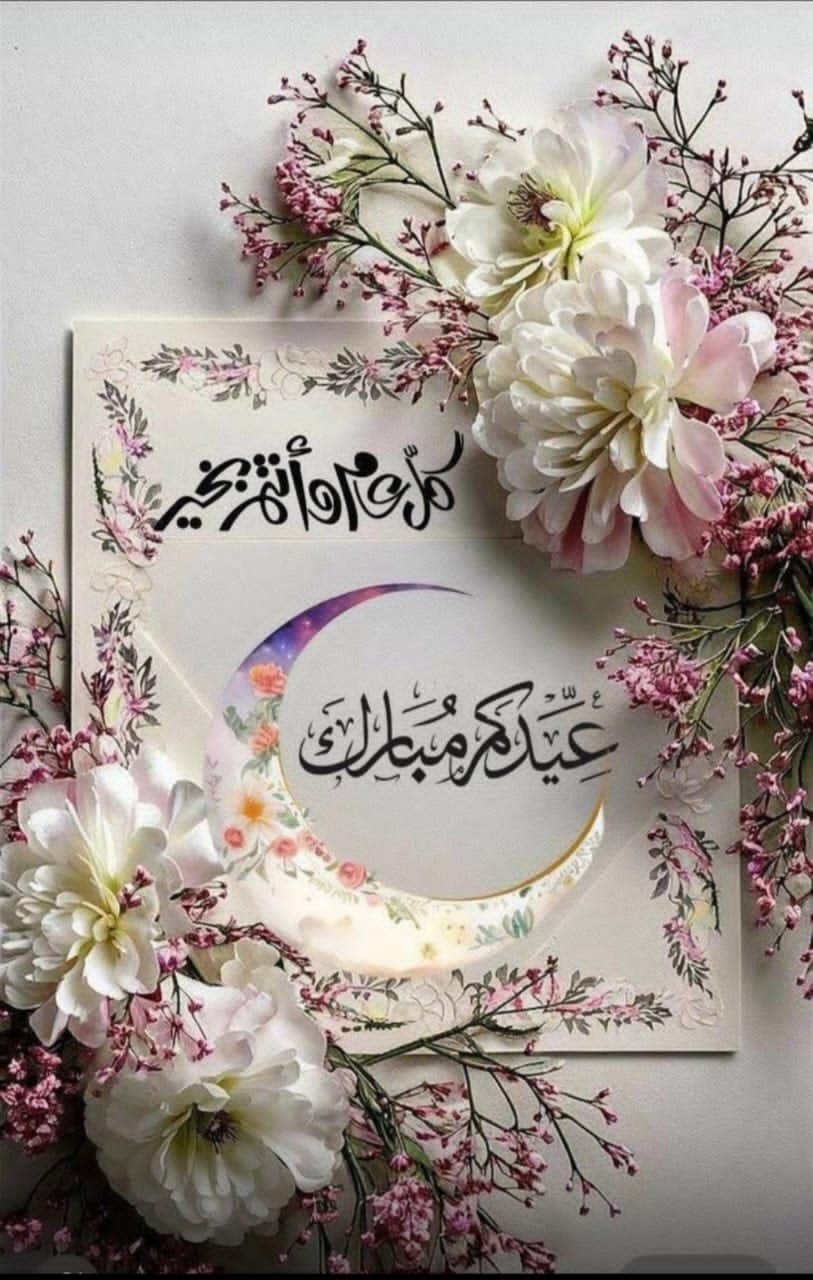 كلّ عام وأنتم بخير
عِيَّدكم مُبَارك